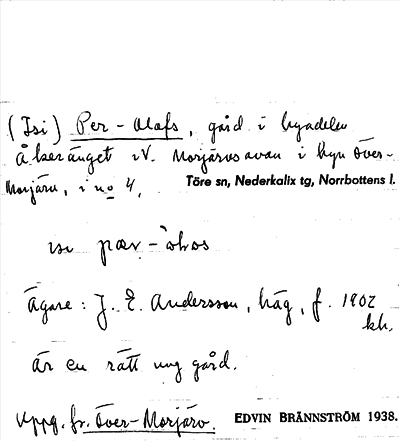 (Isi) Per-Olofs, gård i byadelen
Åkeränget i V. Morjärvs avan i byn Över-
Morjärv, i no 4,
Töre sn, Nederkalix tg, Norrbottens l.
isi pær-
Ägare: J. E. Andersson, häg, f. 1902
kh.
Är en rätt ung gård.
Uppg. fr. Över-Morjärv.
EDVIN BRÄNNSTRÖM 1938.